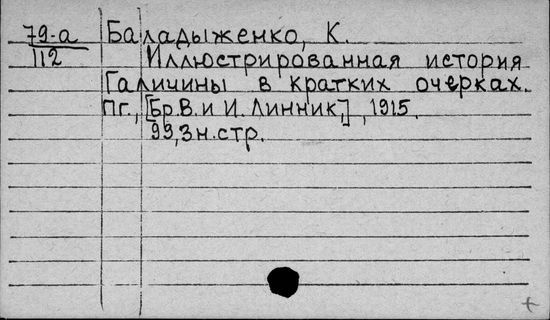 79-а Баладыженко, К.
112 Иллюстрированная история
Галичины в кратких очерках.
Пг., [Бр. В. и И. Линник,] , 1915.
99, 3 н. стр.